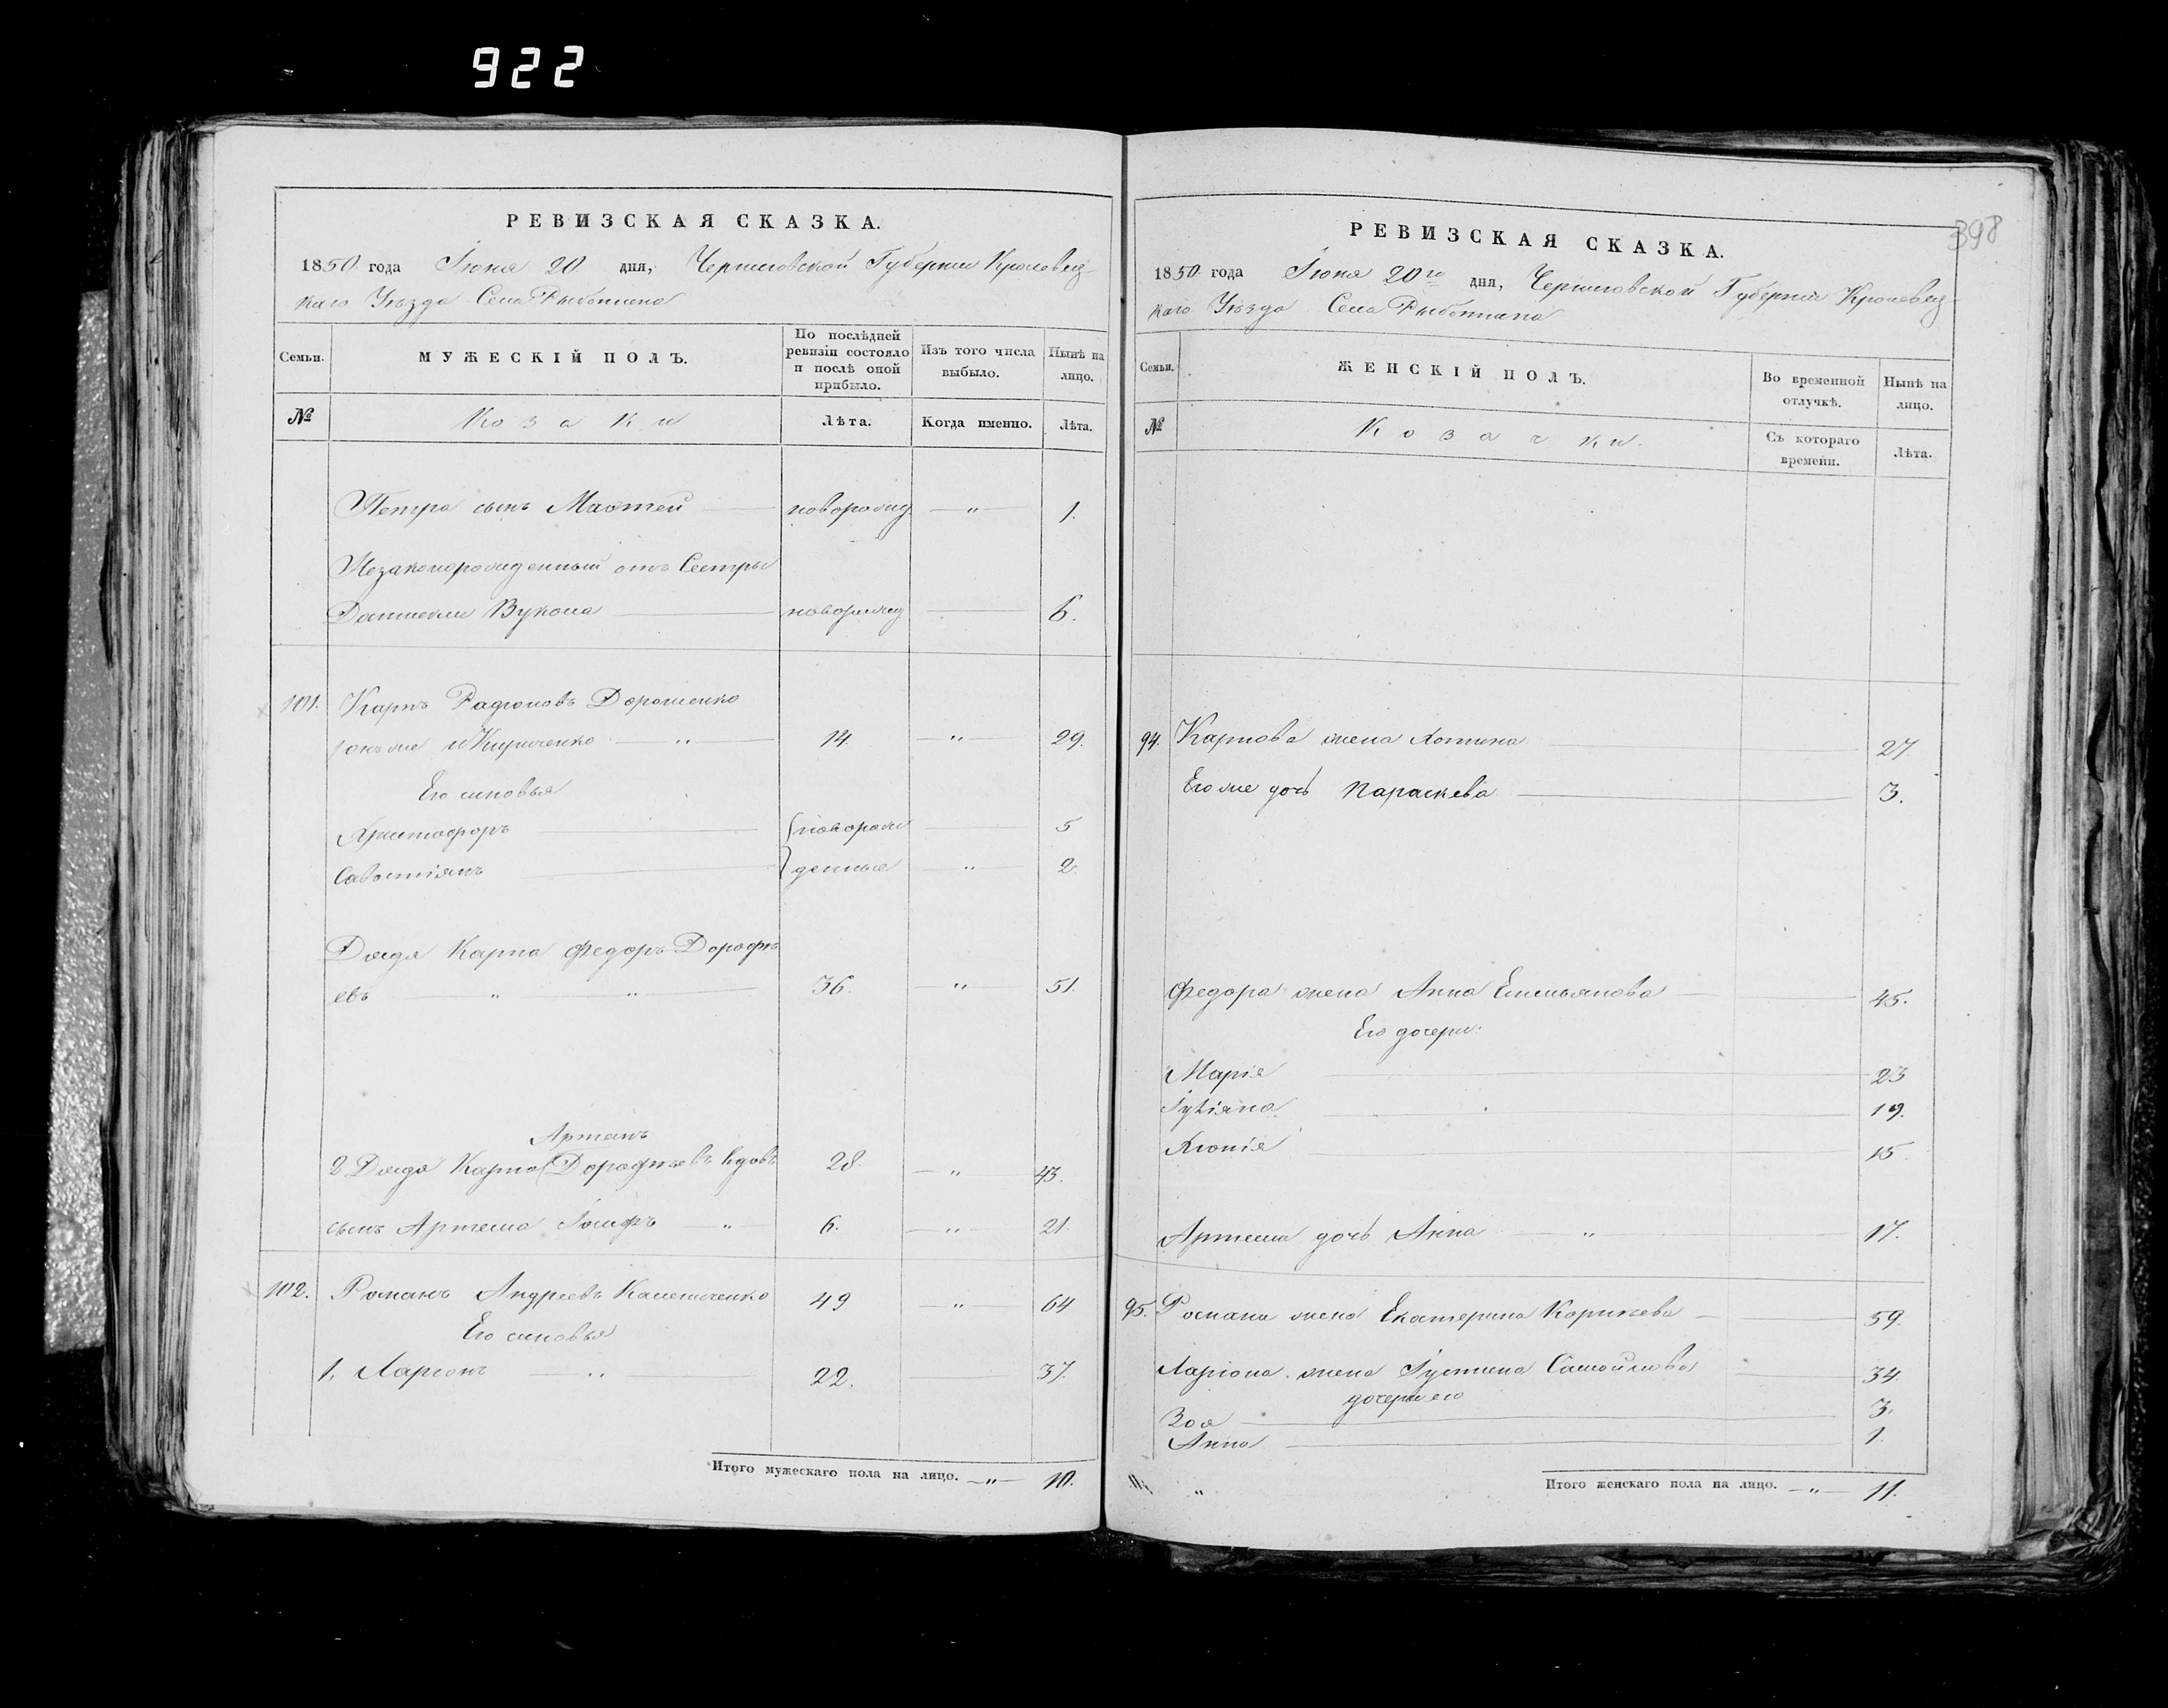 922
РЕВИЗСКАЯ СКАЗКА.
1850 года Іюня 20 дня, Черниговской Губерніи Кролевец-
каго Уѣзда Села Рыботина
Семьи.
МУЖЕСКІЙ ПОЛЪ.
По послѣдней ревизіи состояло и послѣ оной прибыло.
Изъ того числа выбыло.
Нынѣ на лицо.
№
Козаки
Лѣта.
Когда именно.
Лѣта.
Петра сынъ Маѳтей новорожд — " — 1.
Незаконорожденный отъ Сестры
Вукола новорожд 6.
101. Карпъ Радіоновъ Дорошенко
онъ же и Кириченко " 14. " 29.
Его сыновья
Христофоръ {новорож 5
Савостіянъ }денные " 2.
Дядя Карпа Федоръ Дорофѣ
евъ " " 36. " 51.
Артемъ
2 Дядя Карпа Дорофѣевъ вдовъ 28. " 43.
сынъ Артема Іосифъ " 6. " 21.
102. Романъ Андреевъ 49 " 64
Его сыновья
1. Ларіонъ " 22. 37.
Итого мужескаго пола на лицо. — " — 10.
398
РЕВИЗСКАЯ СКАЗКА.
1850 года Іюня 20го дня, Черниговской Губерніи Кролевец-
каго Уѣзда Села Рыботина
Семьи.
ЖЕНСКІЙ ПОЛЪ.
Во временной отлучкѣ.
Нынѣ на лицо.
№
Козачки.
Съ котораго времени.
Лѣта.
94. Карпова жена 27.
Его же дочь Параскева 3.
Федора жена Анна Емельянова 45.
Его дочери:
Марія 23
19.
15.
Артема дочь Анна " 17.
95. Романа жена Екатерина Корнѣева 59.
Ларіона жена Іустина Самойлова 34
дочери его
Зоя 3.
Анна 1.
11. " Итого женскаго пола на лицо. — " — 11.